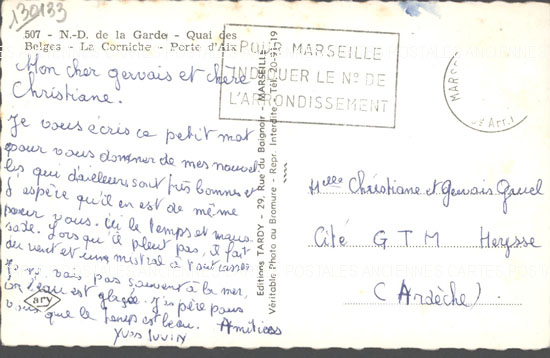 130133
507 - N.-D. de la Garde - Quai des
Belges - La Corniche - Porte d'Aix
POUR MARSEILLE
INDIQUER LE Nº DE
L'ARRONDISSEMENT
Mon cher gervais et chère
Christiane.
Je vous écris ce petit mot
pour vous donner de mes nouvel
les qui d'ailleurs sont très bonnes et
j'espère qu'il en est de même
pour vous. Ici le temps est maus
sade. Lorsqu'il pleut pas, il fait
du vent et un mistral à tout casser.
Je vais pas souvent à la mer,
l'eau est glacée. J'espère pour
vous que le temps est beau. Amitiés
Yves
ary
Editions TARDY - 29, Rue du Baignoir - MARSEILLE
Véritable Photo au Bromure - Repr. Interdite - Tél. 20-91-19
Melle Christiane et Gervais
Cité G T M
(Ardèche)